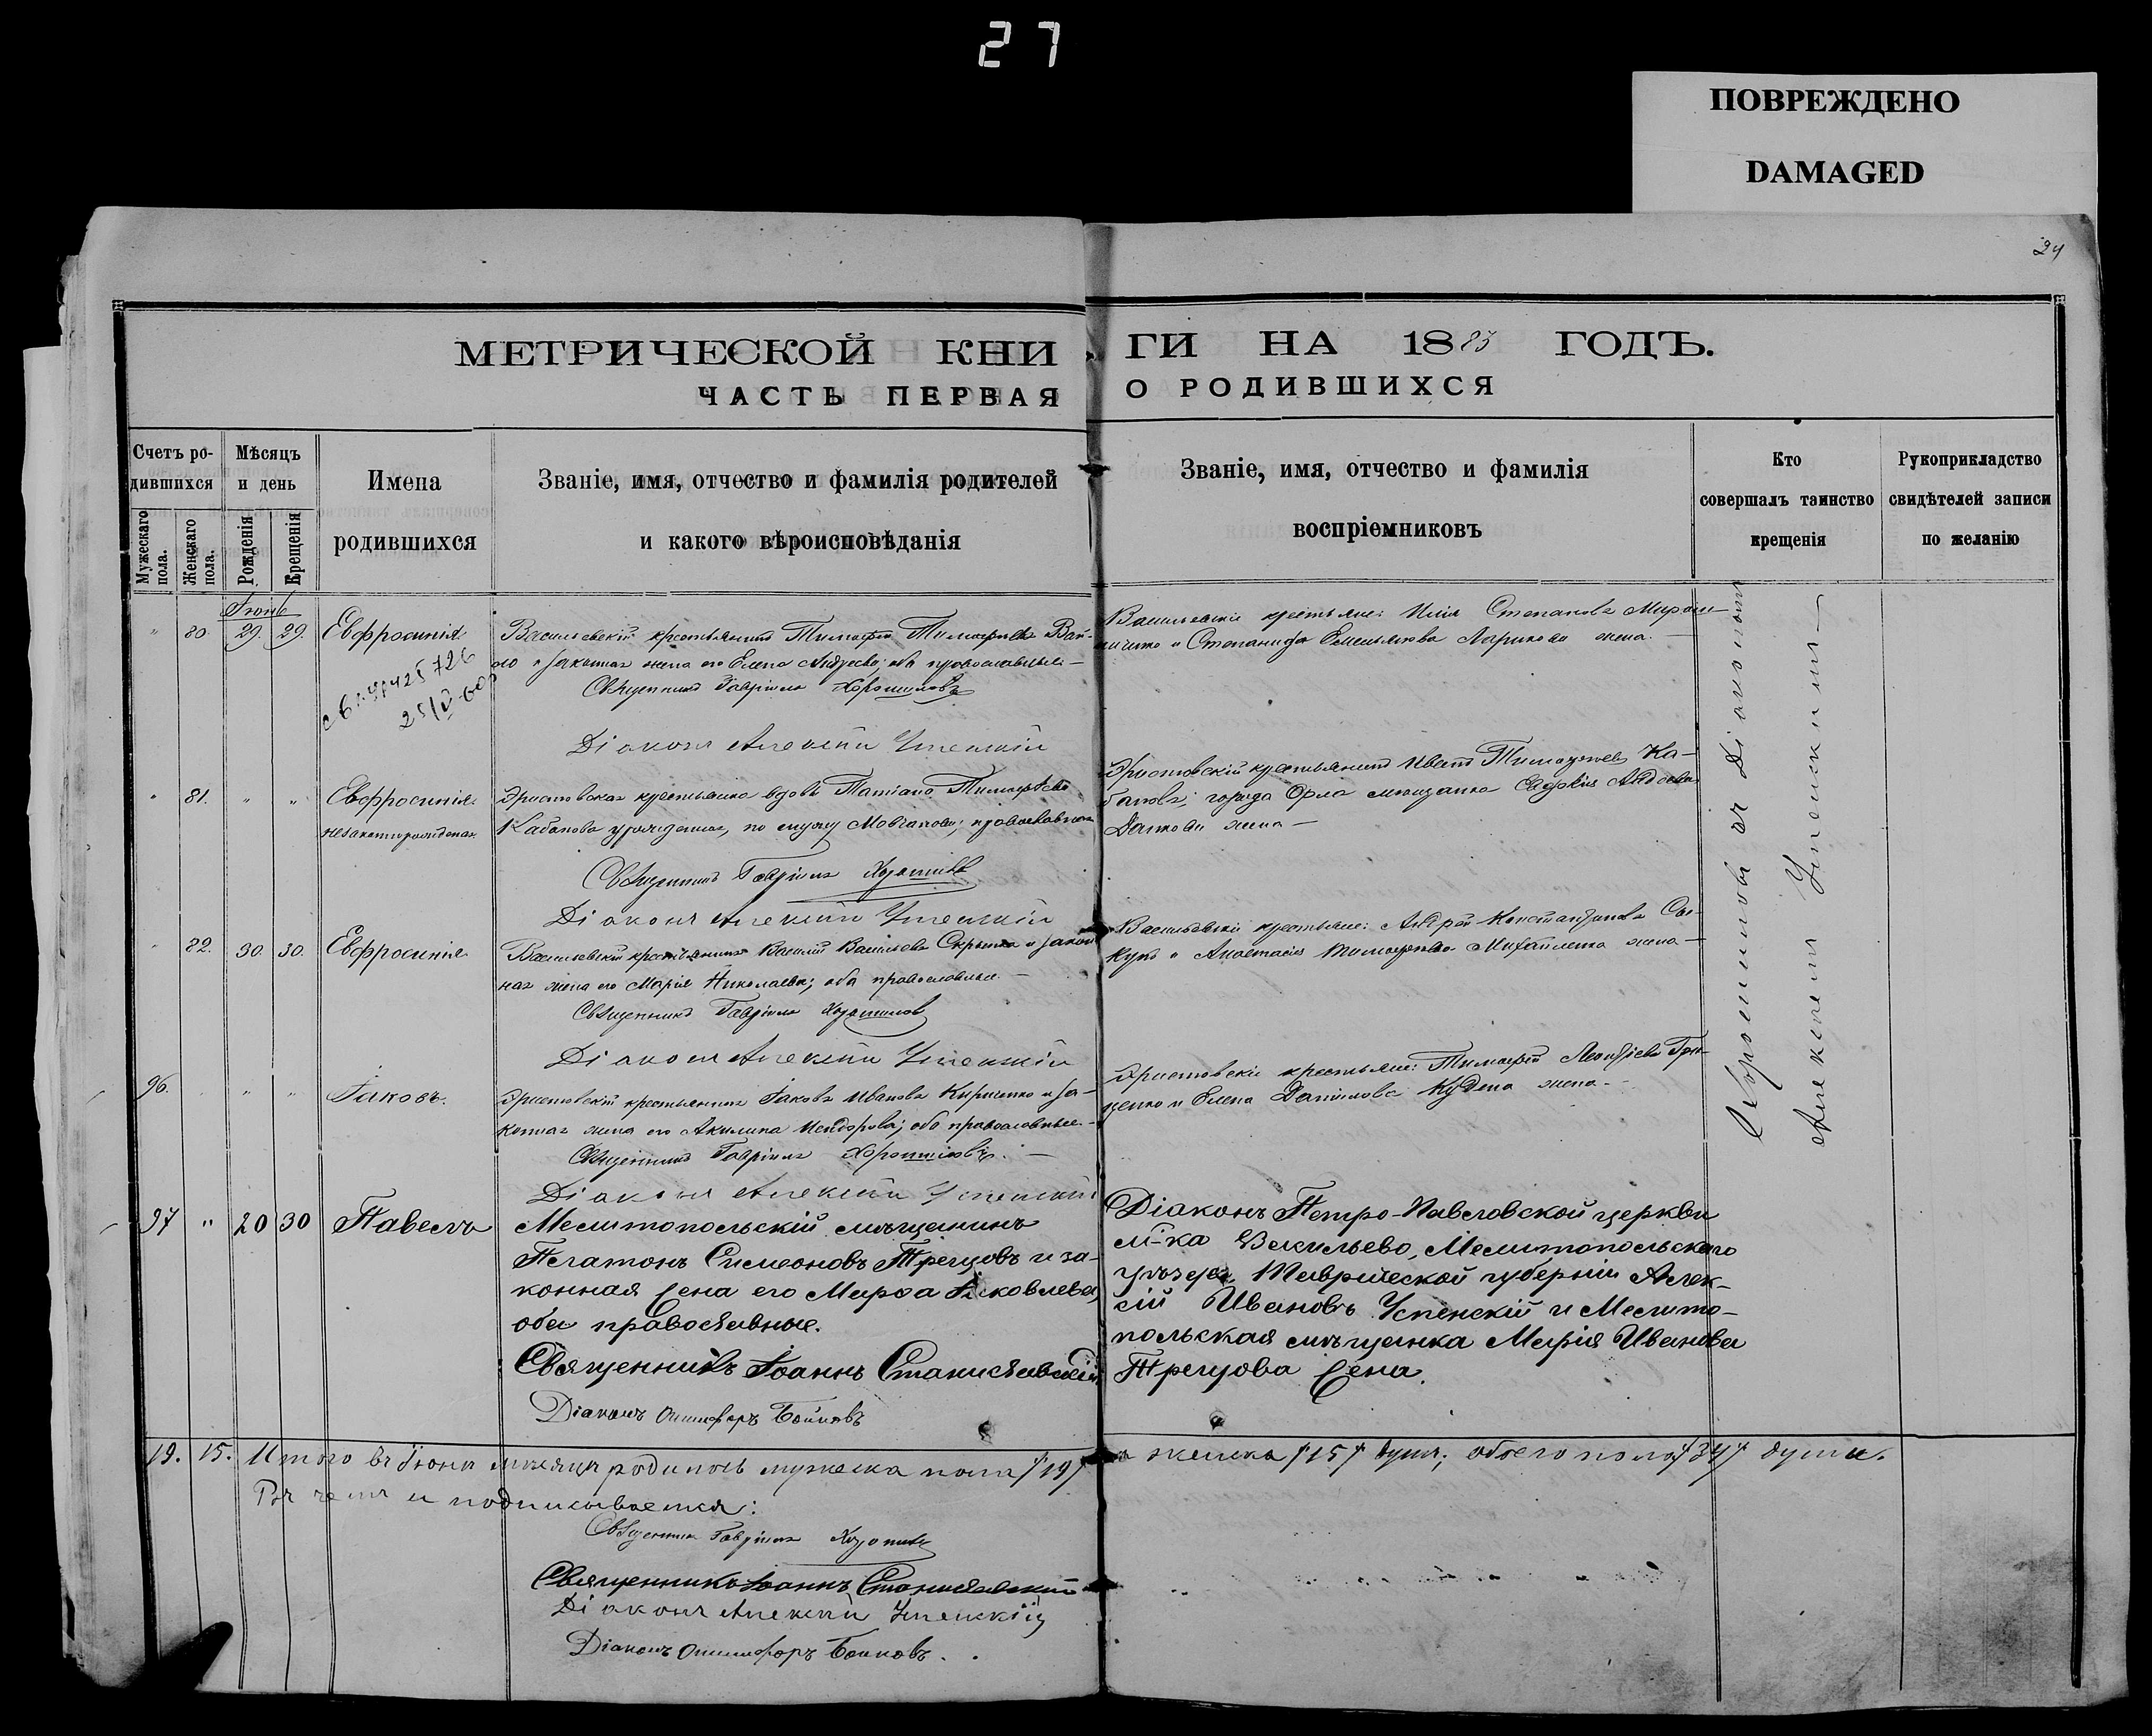 27
ПОВРЕЖДЕНО
DAMAGED
24
МЕТРИЧЕСКОЙ КНИ ГИ НА 1883 ГОДЪ.
ЧАСТЬ ПЕРВАЯ О РОДИВШИХСЯ
Счетъ ро-
дившихся
Мужескаго пола.
Женскаго пола.
Мѣсяцъ
и день
Рожденія
Крещенія
Имена
родившихся
Званіе, имя, отчество и фамилія родителей
и какого вѣроисповѣданія
Званіе, имя, отчество и фамилія
воспріемниковъ
Кто
совершалъ таинство
крещенія
Рукоприкладство
свидѣтелей записи
по желанію
Іюнь
" 80. 29. 29. Евфросинія
Васильевскій крестьянинъ Тимофей Тимофеевъ
и законная жена его Елена Андреева; оба православные—
Священникъ Гавріилъ Хорошиловъ
Діаконъ Алексій Успенскій
25/V-60
Васильевскіе крестьяне: Илія Степановъ
и Степанида Емельянова Ларикова жена.—
" 81. " " Евфросинія
незаконнорожденная
крестьянка вдова Татіана Тимофеева
Кабанова урожденная, по мужу православная
Священникъ Гавріилъ Хорошиловъ
Діаконъ Алексій Успенскій
крестьянинъ Иванъ Тимофеевъ Ка-
бановъ; города Орла мѣщанка Евдокія
жена—
" 82. 30. 30. Евфросинія
Васильевскій крестьянинъ Василій Васильевъ и закон
ная жена его Марія Николаева; оба православные.—
Священникъ Гавріилъ Хорошиловъ
Діаконъ Алексій Успенскій
Васильевскіе крестьяне: Андрей Константиновъ
и Анастасія Тимофеева Михайленко жена—
96. " " " Іаковъ.
крестьянинъ Іаковъ Ивановъ Кириченко и за-
конная жена его Акилина оба православные—
Священникъ Гавріилъ Хорошиловъ.—
Діаконъ Алексій Успенскій
крестьяне: Тимофей Леонтіевъ Гри-
ценко и Елена Данилова жена.—
Хорошиловъ съ Діакономъ
Алексіемъ Успенскимъ—
97 " 20 30 Павелъ
Мелитопольскій мѣщанинъ
Платонъ Симеоновъ Трецовъ и за-
конная жена его Марѳа Яковлева,
оба православные.
Священникъ Іоаннъ Станиславскій
Діаконъ Онисифоръ Бойковъ
Діаконъ Петро-Павловской церкви
м-ка Васильево, Мелитопольскаго
уѣзда, Таврической губерніи Алек-
сій Ивановъ Успенскій и Мелито-
польская мѣщанка Марія Иванова
Трецова жена.
19. 15. Итого въ Іюнѣ мѣсяцѣ родилось мужеска пола /19/ а женска /15/ душъ; обоего пола /34/ души.
Въ чемъ и подписываемся:
Священникъ Гавріилъ Хорошиловъ
Священникъ Іоаннъ Станиславскій
Діаконъ Алексій Успенскій
Діаконъ Онисифоръ Бойковъ.